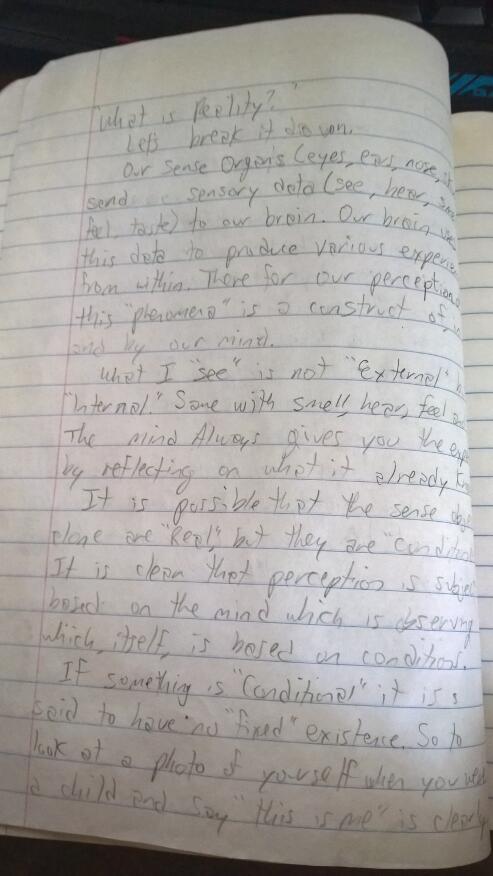 "What is Reality?"
Lets break it down.
Our Sense Organs (eyes, ears, nose,
send sensory data (see, hear,
feel, taste) to our brain. Our brain
this data to produce various
from within. There for our perception
this "phenomena" is a construct of
and by our mind.
What I "see" is not "External"
"Internal." Same with smell, hear, feel
The mind Always gives you the
by reflecting on what it already
It is possible that the sense
alone are "Real", but they are
It is clear that perception is
based on the mind which is observing
which, itself, is based on conditions.
If something is "Conditional" it is
said to have no "fixed" existence. So to
look at a photo of yourself when you
a child and say "this is me" is clearly